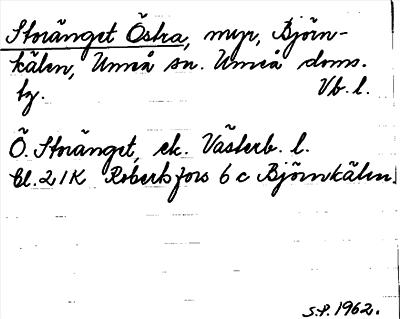 Storänget Östra, myr, Björn-
kälen, Umeå sn. Umeå doms.
tg. Vb. l.
Ö. Storänget, ek. Västerb. l.
Bl. 21K Robertsfors 6 c Björnkälen.
S.P. 1962.